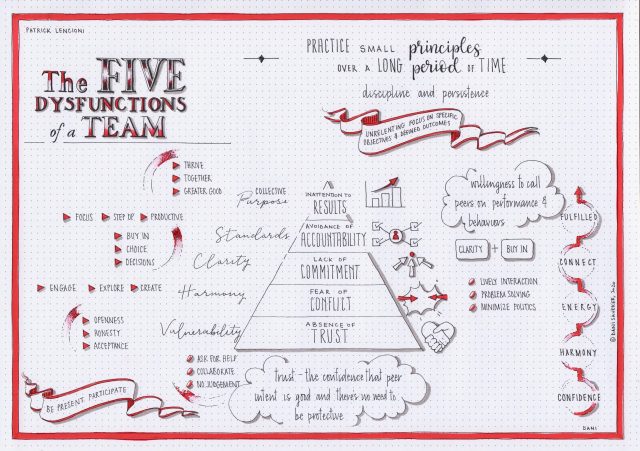 PATRICK LENCIONI
The FIVE
DYSFUNCTIONS
of a TEAM
PRACTICE SMALL principles
OVER A LONG period OF TIME
discipline and persistence
UNRELENTING FOCUS ON SPECIFIC
OBJECTIVES & DEFINED OUTCOMES
THRIVE
TOGETHER
GREATER GOOD
COLLECTIVE
Purpose
INATTENTION TO
RESULTS
FOCUS STEP UP PRODUCTIVE
Standards
AVOIDANCE OF
ACCOUNTABILITY
willingness to call
peers on performance &
behaviors
CLARITY + BUY IN
BUY IN
CHOICE
DECISIONS
Clarity
LACK OF
COMMITMENT
ENGAGE EXPLORE CREATE
Harmony
FEAR OF
CONFLICT
LIVELY INTERACTION
PROBLEM SOLVING
MINIMIZE POLITICS
OPENNESS
HONESTY
ACCEPTANCE
Vulnerability
ABSENCE OF
TRUST
ASK FOR HELP
COLLABORATE
NO JUDGEMENT
trust - the confidence that peer
intent is good and theres no need to
be protective
BE PRESENT. PARTICIPATE
FULFILLED
CONNECT
ENERGY
HARMONY
CONFIDENCE
DANI